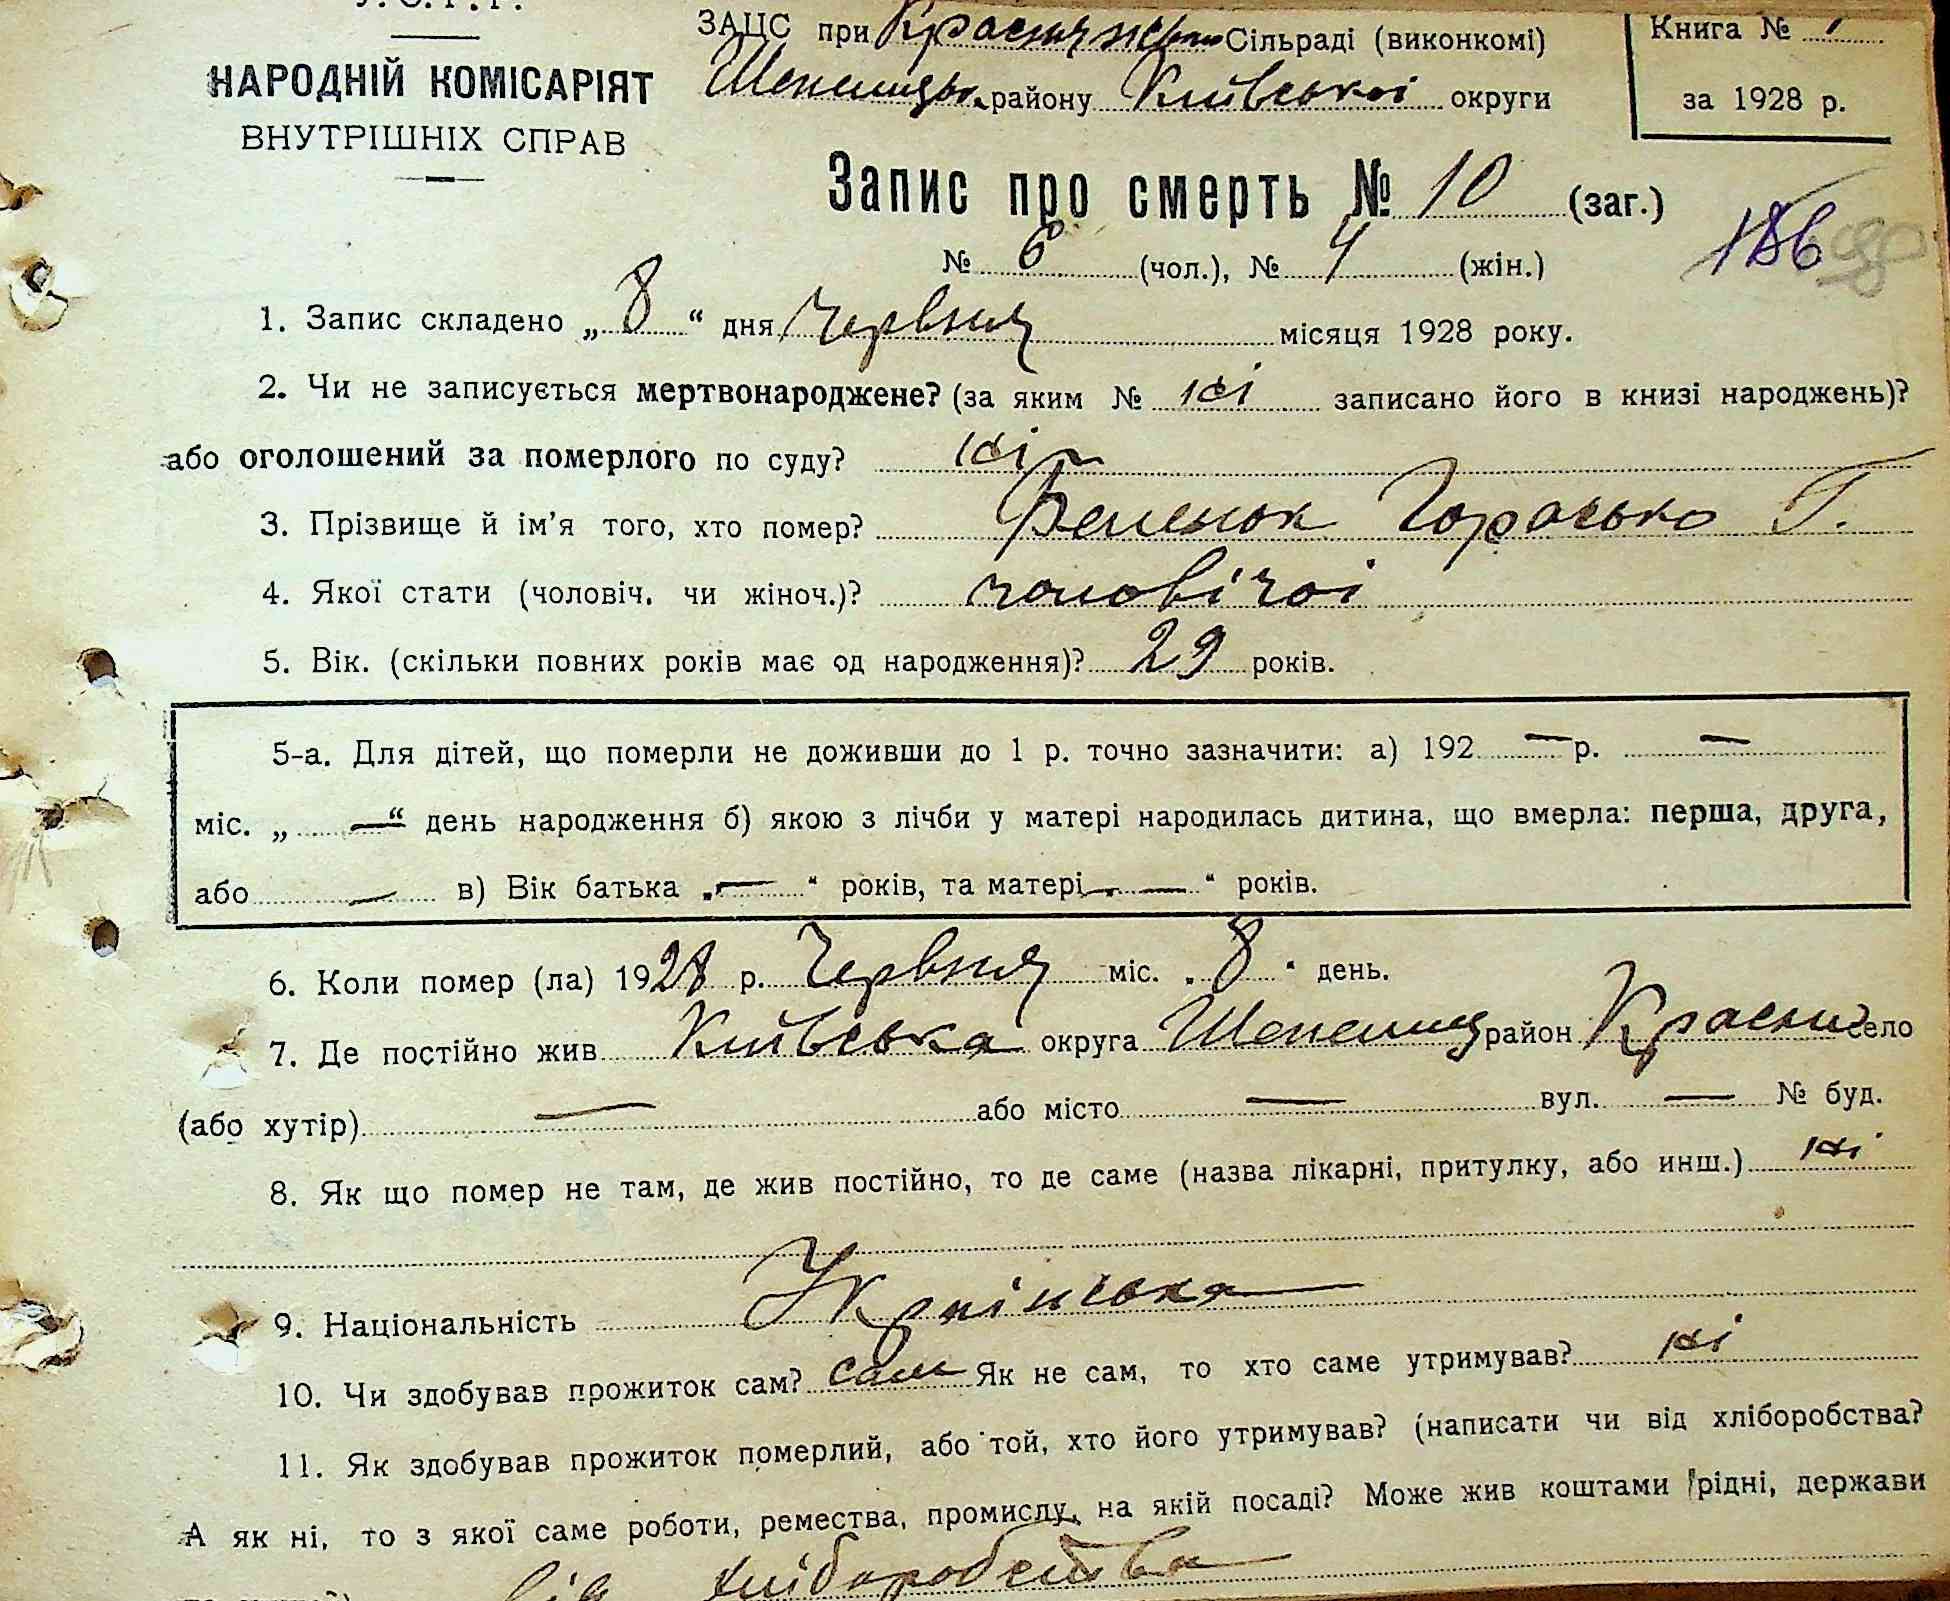 У.С.Р.Р.
НАРОДНІЙ КОМІСАРІЯТ
ВНУТРІШНІХ СПРАВ
ЗАЦС при Сільраді (виконкомі)
району Київської округи
Книга №
за 1928 р.
Запис про смерть № 10 (заг.)
№ 6 (чол.), № 4 (жін.)
186
1. Запис складено „ 8 “ дня Червня місяця 1928 року.
2. Чи не записується мертвонароджене? (за яким № ні записано його в книзі народжень)?
або оголошений за померлого по суду? ні
3. Прізвище й ім’я того, хто помер? Феленок Гарасько Г.
4. Якої стати (чоловіч. чи жіноч.)? чоловічоі
5. Вік. (скільки повних років має од народження)? 29 років.
5-а. Для дітей, що померли не доживши до 1 р. точно зазначити: а) 192 — р. —
міс. „ — “ день народження б) якою з лічби у матері народилась дитина, що вмерла: перша, друга,
або — в) Вік батька „ — “ років, та матері „ — “ років.
6. Коли помер (ла) 1928 р. Червня міс. „ 8 “ день.
7. Де постійно жив Київська округа Шепелиц район Красни село
(або хутір) — або місто — вул. — № буд.
8. Як що помер не там, де жив постійно, то де саме (назва лікарні, притулку, або инш.) ні
9. Національність Украінська
10. Чи здобував прожиток сам? сам Як не сам, то хто саме утримував? ні
11. Як здобував прожиток померлий, або той, хто його утримував? (написати чи від хліборобства?
А як ні, то з якої саме роботи, ремества, промислу, на якій посаді? Може жив коштами рідні, держави
від хліборобства